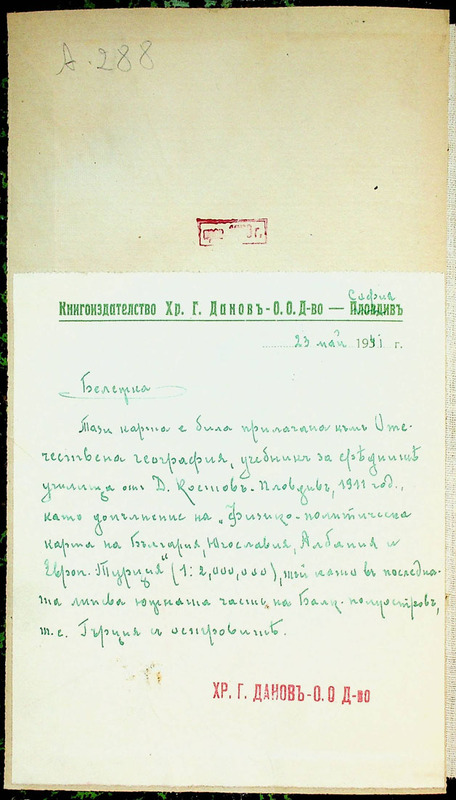 А. 288
Книгоиздателство Хр. Г. Дановъ - О. О. Д-во — Пловдивъ
София
23 май 1941 г.
Белѣжка
Тази карта е била прилагана къмъ Оте-
чествена география, учебникъ за срѣднитѣ
училища отъ Д. Костовъ - Пловдивъ, 1911 год.,
като допълнение на „Физико-политическа
карта на България, Югославия, Албания и
Европ. Турция“ (1:2,000,000), тъй като въ последна-
та липсва южната часть на Балк. полуостровъ,
т. е. Гърция и островитѣ.
ХР. Г. ДАНОВЪ - О. О Д-во